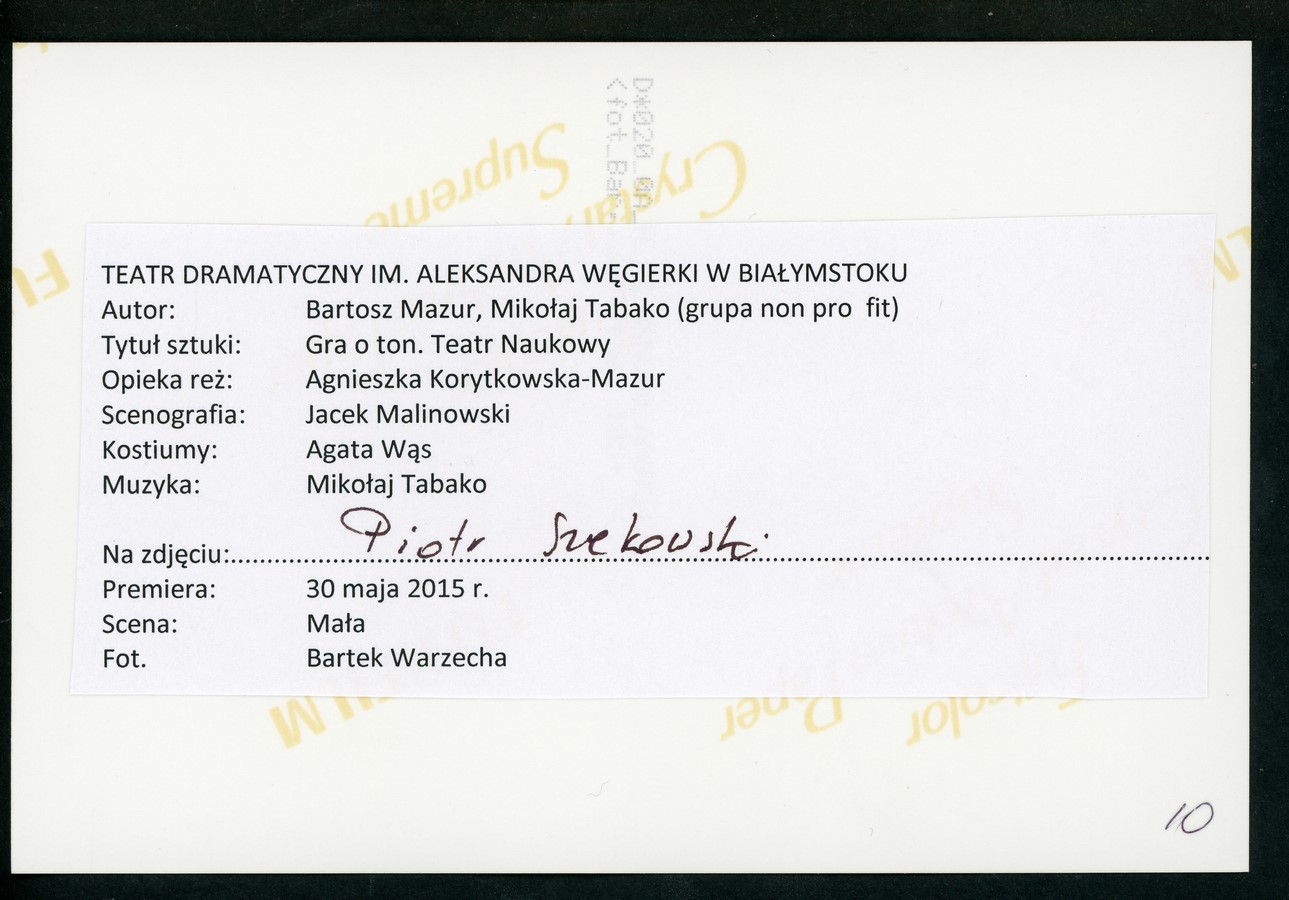 D*020_0A_
<fot_Bar
Crystal
Supreme
FU
LM
TEATR DRAMATYCZNY IM. ALEKSANDRA WĘGIERKI W BIAŁYMSTOKU
Autor: Bartosz Mazur, Mikołaj Tabako (grupa non pro fit)
Tytuł sztuki: Gra o ton. Teatr Naukowy
Opieka reż: Agnieszka Korytkowska-Mazur
Scenografia: Jacek Malinowski
Kostiumy: Agata Wąs
Muzyka: Mikołaj Tabako
Na zdjęciu: Piotr Szekowski
Premiera: 30 maja 2015 r.
Scena: Mała
Fot. Bartek Warzecha
FUJIFILM
Fujicolor Paper
10